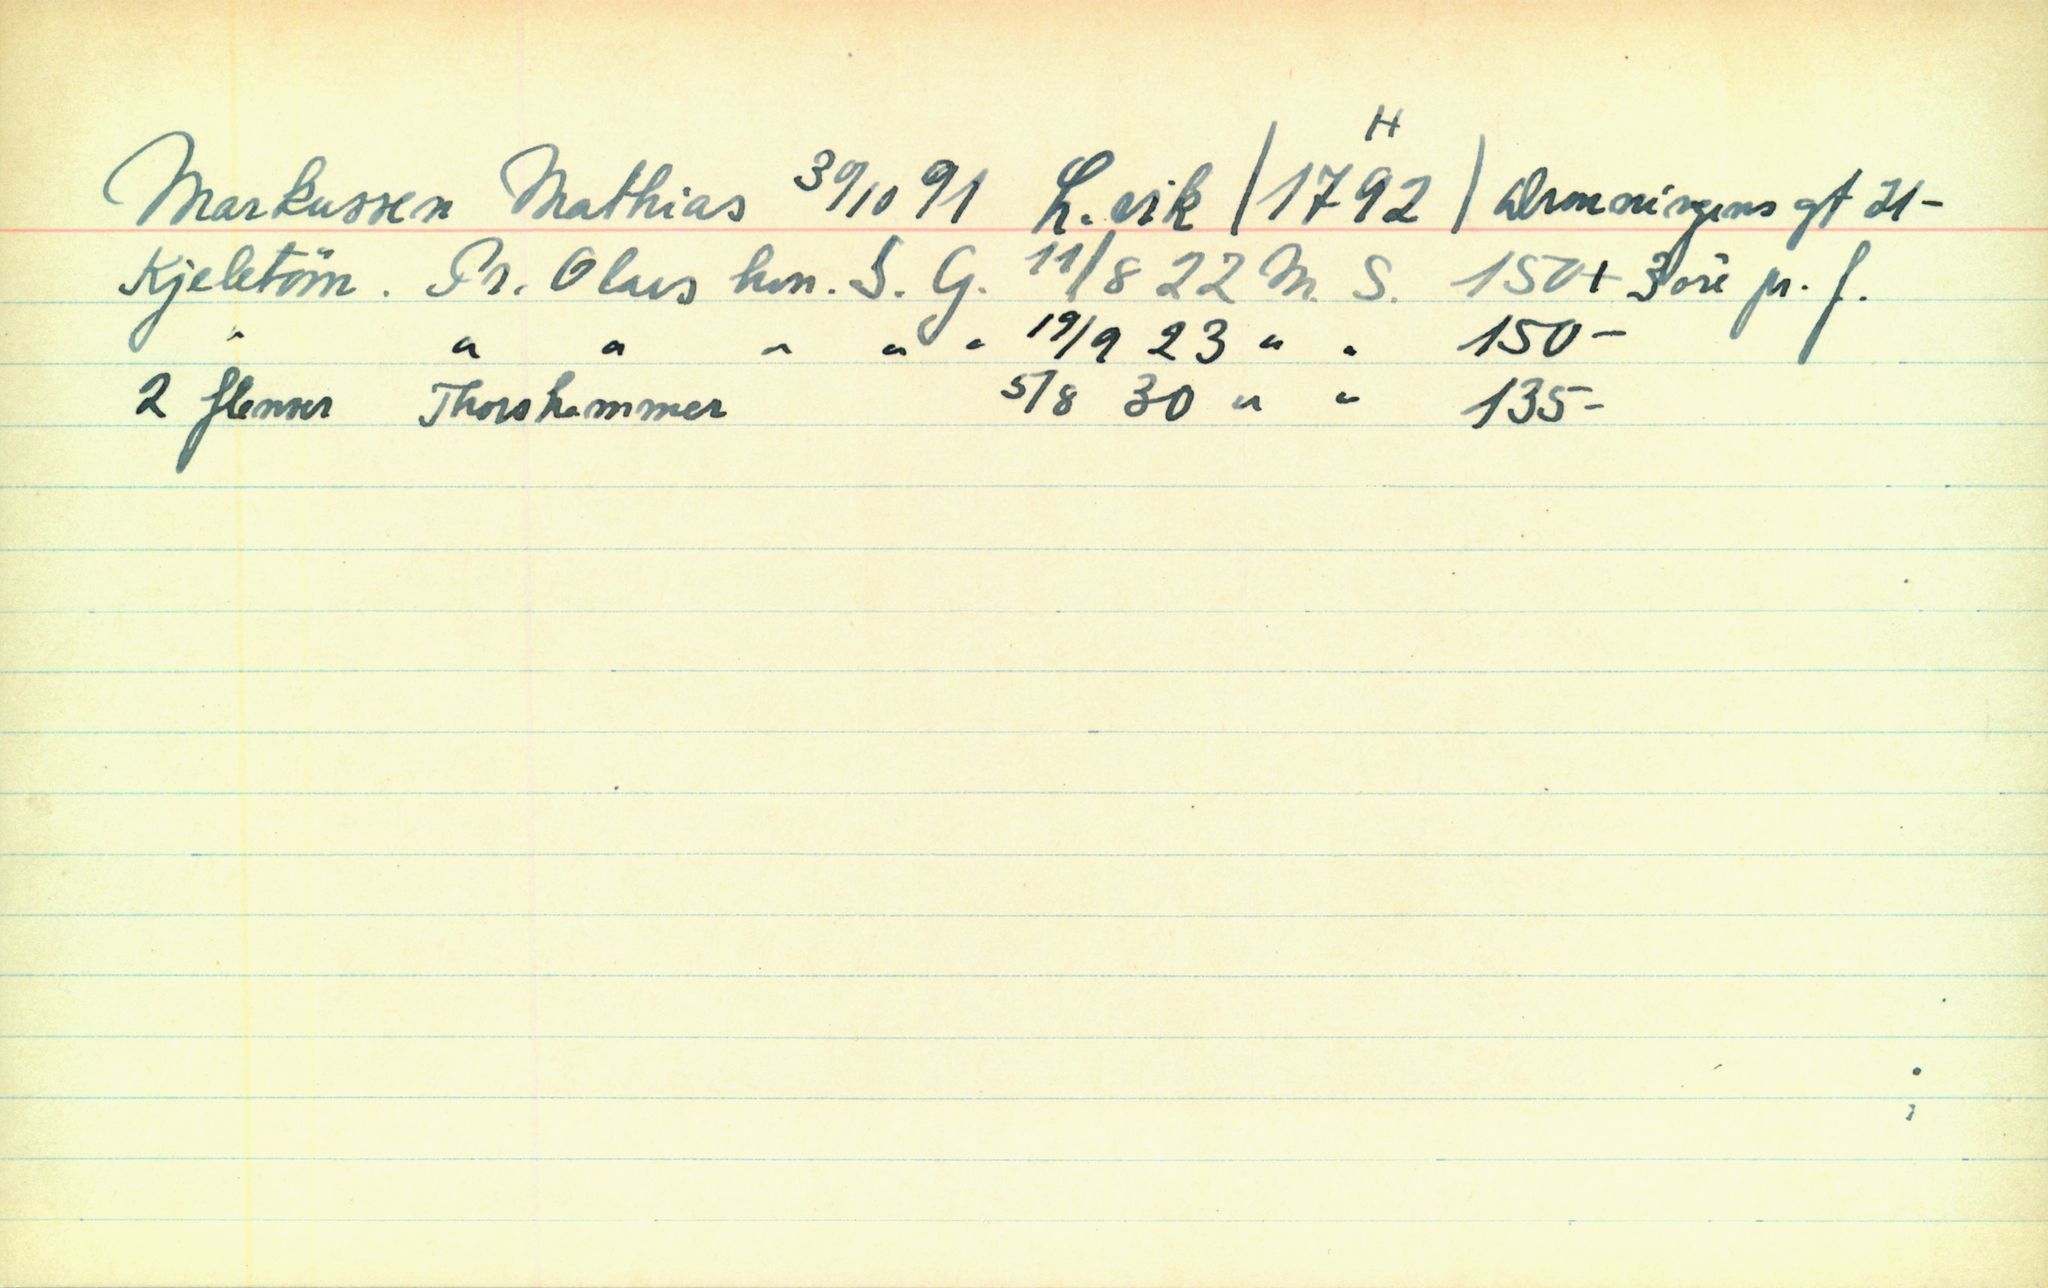 H
Markussen Mathias 30/10 91 L.vik | 1792 | Dronningens gt 21-
Kjeletöm. Pr. Olavs hvn. S. G. 11/8 22 M. S. 150 + 3 öre pr. f.
" " " " " " 19/9 23 " " 150-
2 flenser Thorshammer 5/8 30 " " 135-